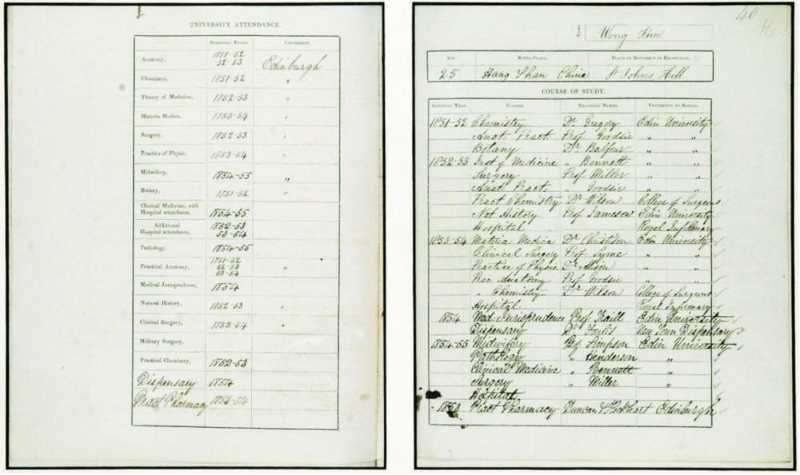 UNIVERSITY ATTENDANCE.
SESSIONAL YEARS. UNIVERSITY.
Anatomy, 1851-52 52-53 Edinburgh
Chemistry, 1851-52 "
Theory of Medicine, 1852-53 "
Materia Medica, 1853-54 "
Surgery, 1852-53 "
Practice of Physic, 1853-54 "
Midwifery, 1854-55 "
Botany, 1851-52 "
Clinical Medicine, with Hospital attendance, 1854-55
Additional Hospital attendance, 1852-53 53-54
Pathology, 1854-55
Practical Anatomy, 1851-52 52-53 53-54 "
Medical Jurisprudence, 1854
Natural History, 1852-53 "
Clinical Surgery, 1853-54 "
Military Surgery,
Practical Chemistry, 1852-53
Dispensary 1854
Pract Pharmacy 1853-54
40
3 Wong Fun
AGE. BIRTH PLACE. PLACE OF RESIDENCE
25 Hang Shan China St Johns Hill
COURSE OF STUDY.
SESSIONAL YEAR. CLASSES. TEACHERS' NAMES. UNIVERSITY OR SCHOOL.
1851-52 Chemistry Dr Gregory Edin University
Anat. Pract. Prof Goodsir " "
Botany Dr Balfour " "
1852-53 Inst of Medicine " Bennett " "
Surgery Prof Miller " "
Anat Pract. " Goodsir " "
Pract Chemistry Dr Wilson College of Surgeons
Nat History Prof Jameson Edin University
Hospital Royal Infirmary
1853-54 Materia Medica Dr Christison Edin University
Clinical Surgery Prof Syme " "
Practice of Physic Dr Alison " "
Prac Anatomy Prof Goodsir " "
" Chemistry Dr Wilson College of Surgeons
Hospital Royal Infirmary
1854 Med Jurisprudence Prof Traill Edin University
Dispensary Dr New Town Dispensary
1854-55 Midwifery Prof Simpson Edin University
Pathology " Henderson "
Clinical Medicine " Bennett "
Surgery " Miller "
Hospital
1853 Pract Pharmacy Duncan & Flockhart Edinburgh